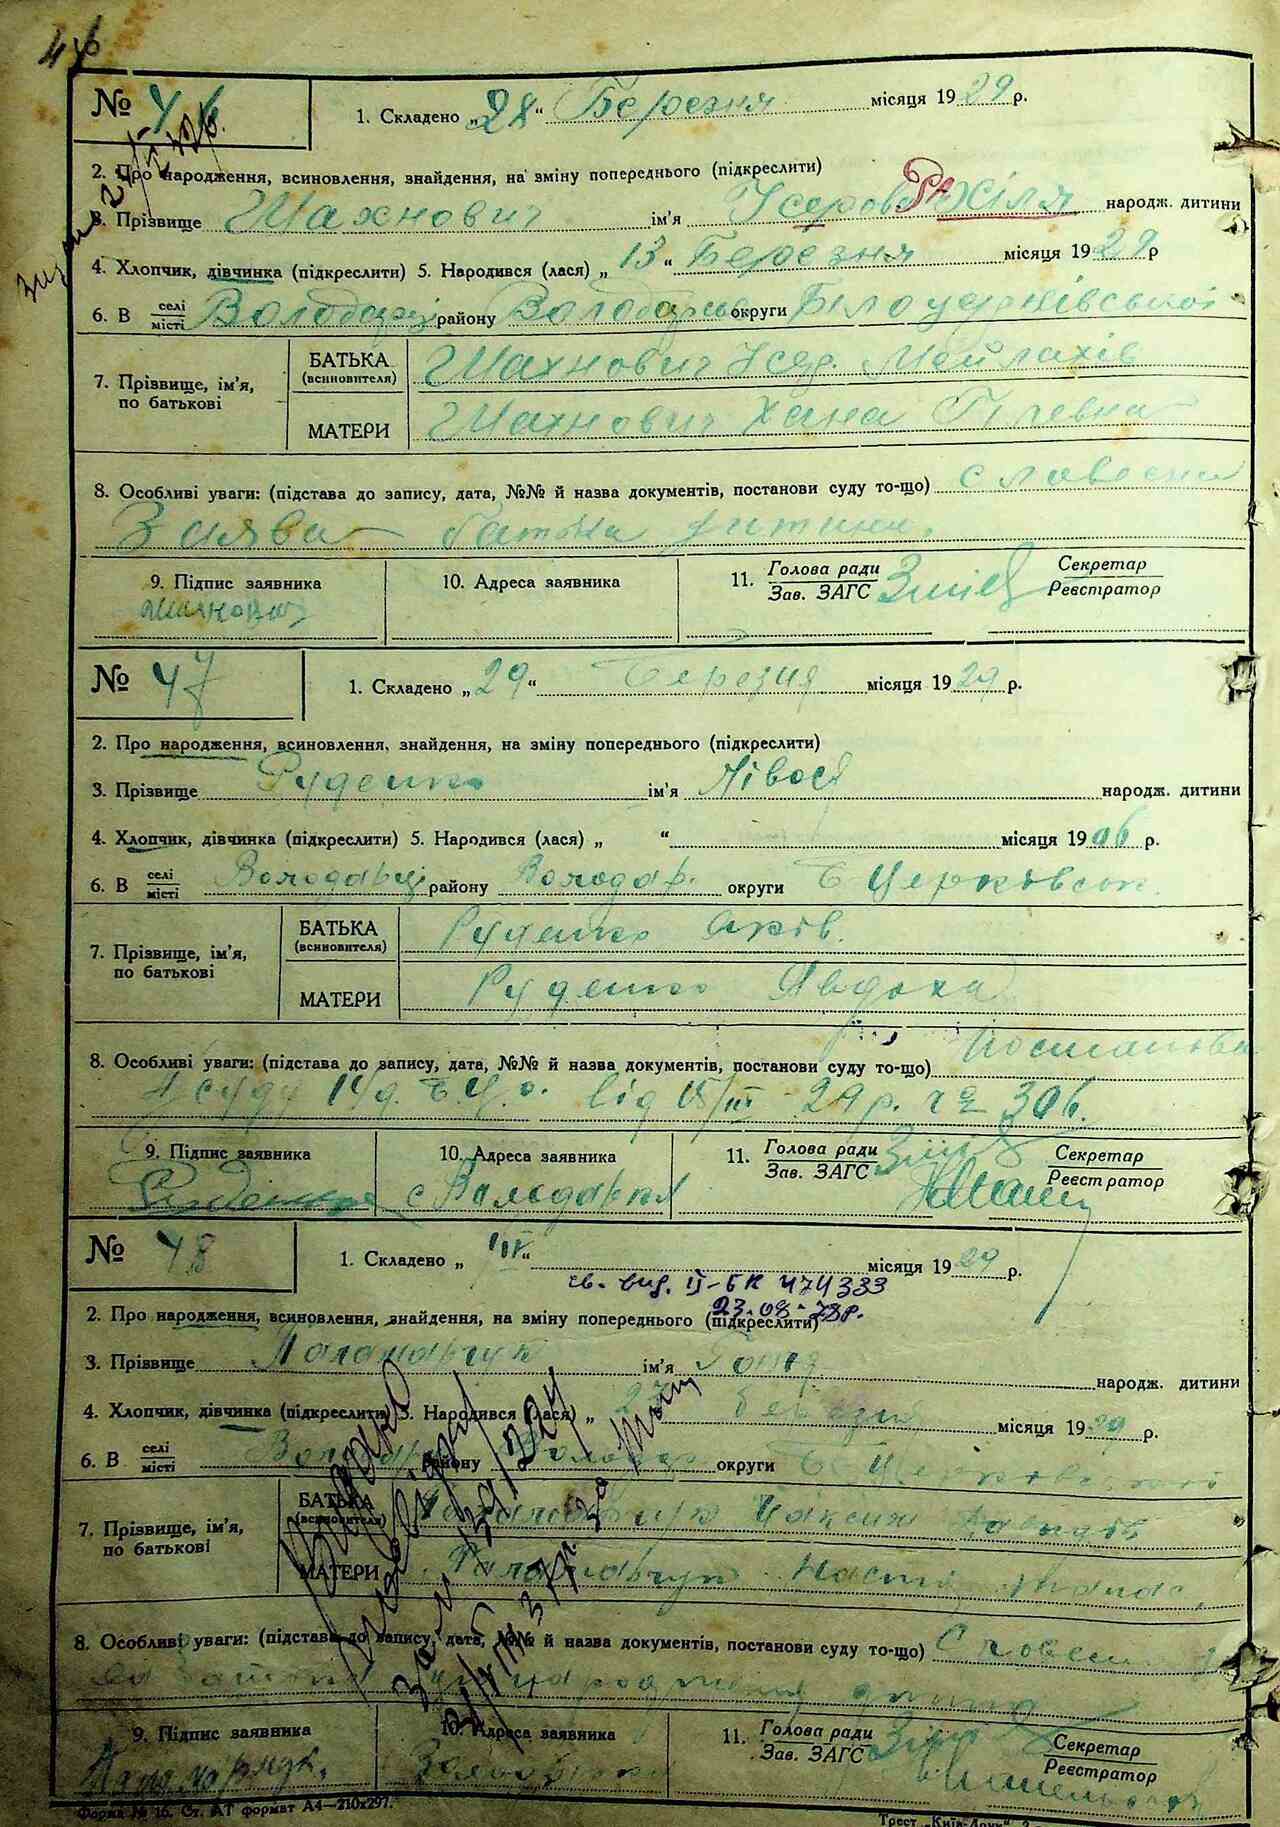 46
№ 46
1. Складено „28“ Березня місяця 1929 р.
2. Про народження, всиновлення, знайдення, на зміну попереднього (підкреслити)
3. Прізвище Шахнович ім'я Рахіля народж. дитини
4. Хлопчик, дівчинка (підкреслити) 5. Народився (лася) „13“ Березня місяця 1929 р
6. В селі місті Володарці району Володарсь округи Білоцерківської
7. Прізвище, ім'я, по батькові
БАТЬКА (всиновителя) Шахнович Усер. Мейлахів
МАТЕРИ Шахнович Хана
8. Особливі уваги: (підстава до запису, дата, №№ й назва документів, постанови суду то-що) словесна
Заява батька дитини.
9. Підпис заявника
10. Адреса заявника
11. Голова ради Зав. ЗАГС
Секретар Реєстратор
Шахнович
№ 47
1. Складено „29“ Березня місяця 1929 р.
2. Про народження, всиновлення, знайдення, на зміну попереднього (підкреслити)
3. Прізвище Руденко ім'я народж. дитини
4. Хлопчик, дівчинка (підкреслити) 5. Народився (лася) „ “ місяця 1906 р.
6. В селі місті Володарці району Володар. округи Б Церківськ.
7. Прізвище, ім'я, по батькові
БАТЬКА (всиновителя) Руденко Яків.
МАТЕРИ Руденко Явдоха
8. Особливі уваги: (підстава до запису, дата, №№ й назва документів, постанови суду то-що) Постанова
суду Б.Ц.о. від 15/III 29 р. за 306.
9. Підпис заявника
10. Адреса заявника
11. Голова ради Зав. ЗАГС
Секретар Реєстратор
Руденко
с Володарка
№ 48
1. Складено „ “ місяця 1929 р.
св. вид. II-БК 474333
23.08-78р.
2. Про народження, всиновлення, знайдення, на зміну попереднього (підкреслити)
3. Прізвище Паламарчук ім'я народж. дитини
4. Хлопчик, дівчинка (підкреслити) 5. Народився (лася) „ 27 березня місяця 1929 р.
6. В селі місті Володарці району Володар округи Б Церківської
7. Прізвище, ім'я, по батькові
БАТЬКА (всиновителя) Паламарчук
МАТЕРИ Паламарчук
8. Особливі уваги: (підстава до запису, дата, №№ й назва документів, постанови суду то-що) Словесна
9. Підпис заявника
10. Адреса заявника
11. Голова ради Зав. ЗАГС
Секретар Реєстратор
Паламарчук.
Форма № 16. Ст. АТ формат А4—210х297.
Трест „Київ-Друк“